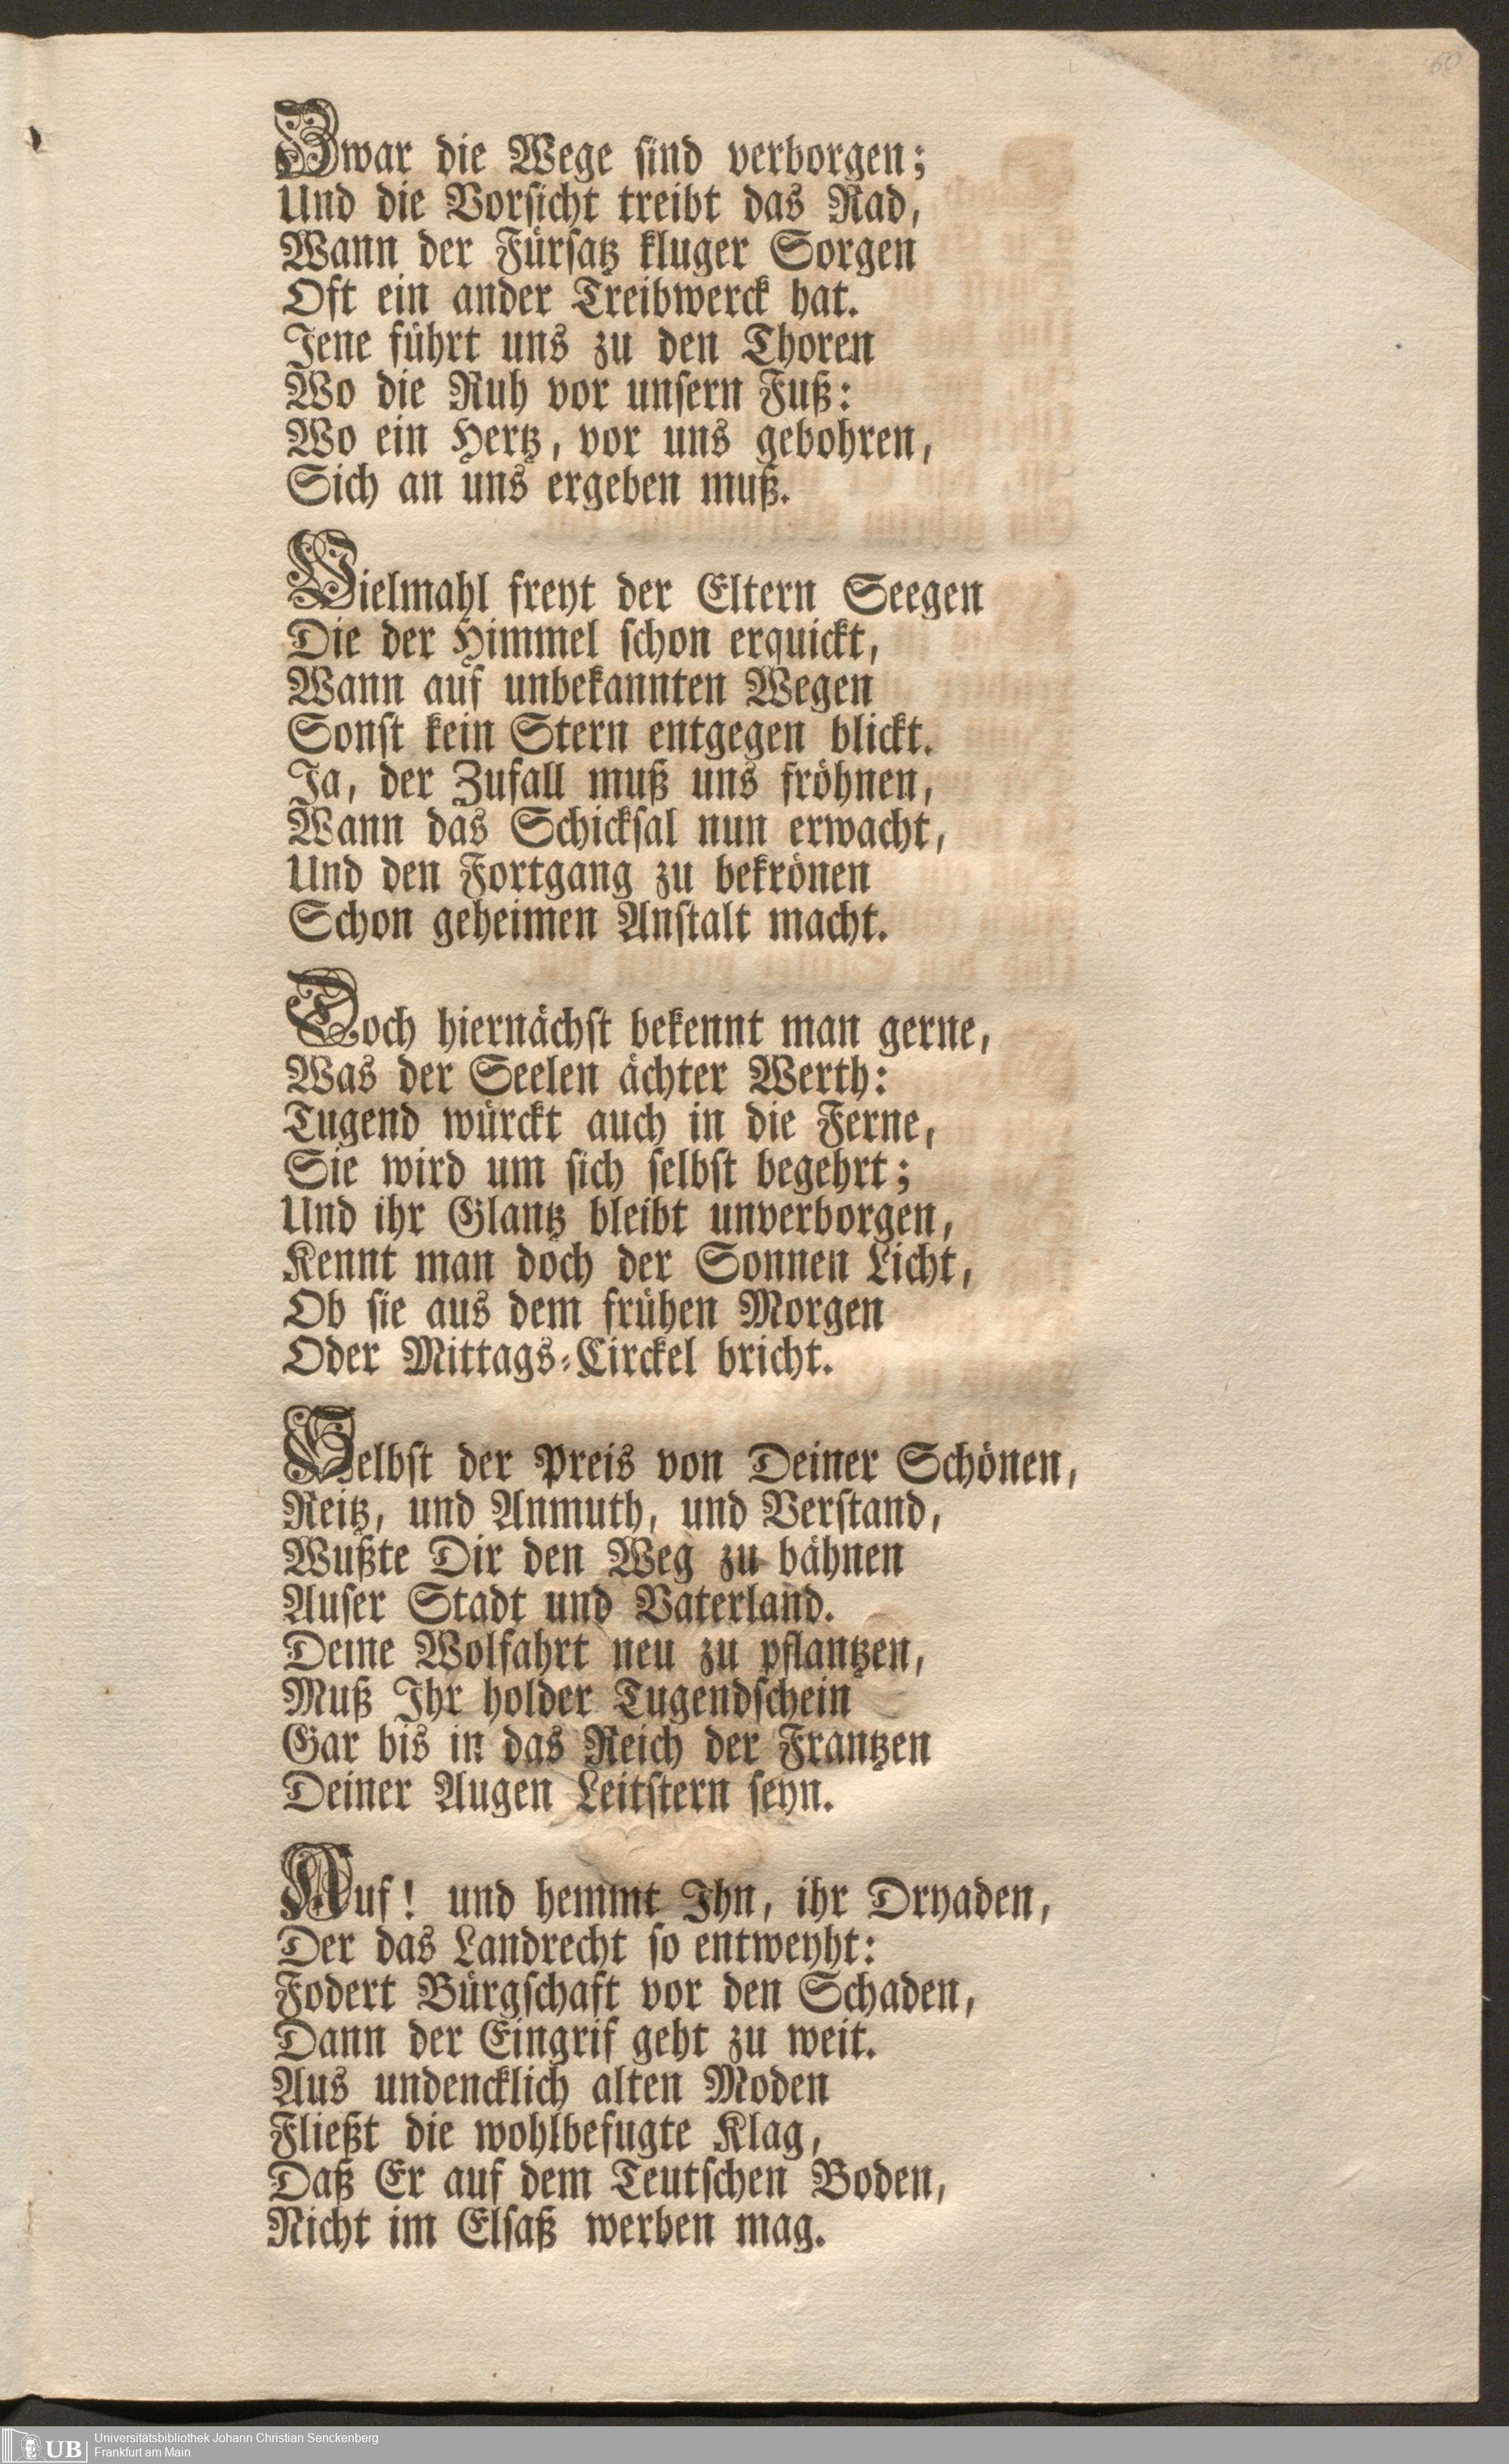 60
Zwar die Wege sind verborgen;
Und die Vorsicht treibt das Rad,
Wann der Fürsatz kluger Sorgen
Oft ein ander Treibwerck hat.
Jene führt uns zu den Thoren
Wo die Ruh vor unsern Fuß:
Wo ein Hertz, vor uns gebohren,
Sich an uns ergeben muß.
Vielmahl freyt der Eltern Seegen
Die der Himmel schon erquickt,
Wann auf unbekannten Wegen
Sonst kein Stern entgegen blickt.
Ja, der Zufall muß uns fröhnen,
Wann das Schicksal nun erwacht,
Und den Fortgang zu bekrönen
Schon geheimen Anstalt macht.
Doch hiernächst bekennt man gerne,
Was der Seelen ächter Werth:
Tugend würckt auch in die Ferne,
Sie wird um sich selbst begehrt;
Und ihr Glantz bleibt unverborgen,
Kennt man doch der Sonnen Licht,
Ob sie aus dem frühen Morgen
Oder Mittags-Circkel bricht.
Selbst der Preis von Deiner Schönen,
Reitz, und Anmuth, und Verstand,
Wußte Dir den Weg zu bähnen
Auser Stadt und Vaterland.
Deine Wolfahrt neu zu pflantzen,
Muß Ihr holder Tugendschein
Gar bis in das Reich der Frantzen
Deiner Augen Leitstern seyn.
Auf! und hemmt Ihn, ihr Dryaden,
Der das Landrecht so entweyht:
Fodert Bürgschaft vor den Schaden,
Dann der Eingrif geht zu weit.
Aus undencklich alten Moden
Fließt die wohlbefugte Klag,
Daß Er auf dem Teutschen Boden,
Nicht im Elsaß werben mag.
UB Universitätsbibliothek Johann Christian Senckenberg
Frankfurt am Main